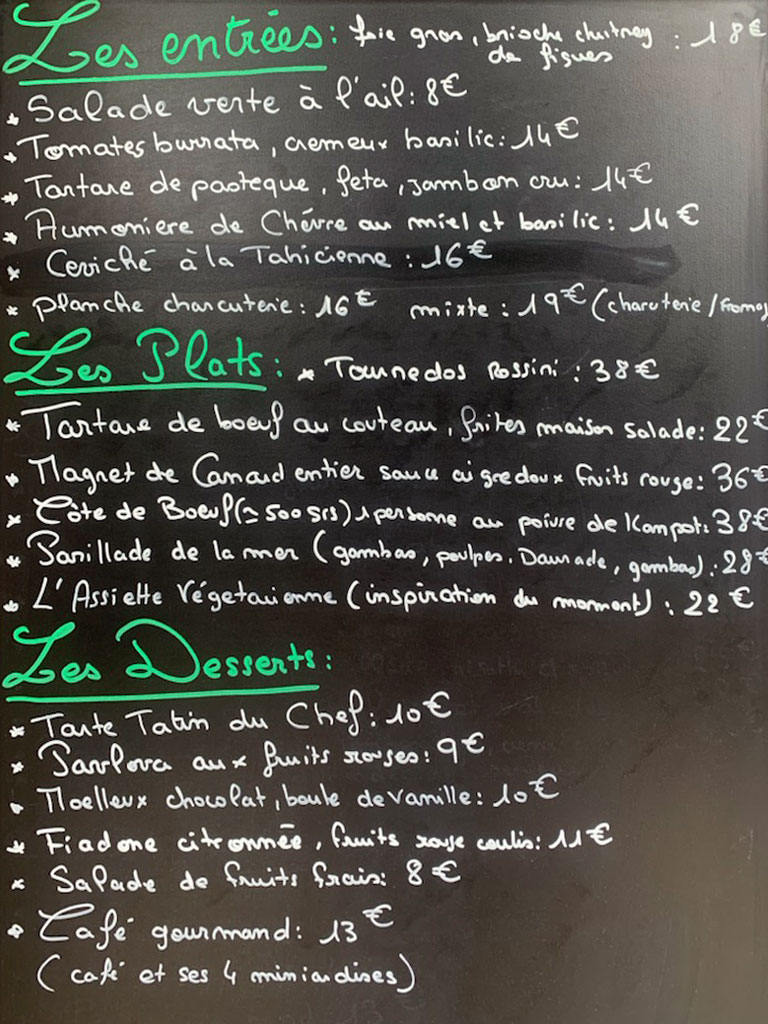 Les entrées: foie gras, brioche chutney de figues : 18€
* Salade verte à l'ail: 8€
* Tomates burrata, cremeux basilic: 14€
* Tartare de pasteque, feta, jambon cru: 14€
* Aumoniere de Chévre au miel et basilic: 14€
* Ceviché à la Tahicienne : 16€
* Planche charcuterie: 16€ mixte : 19€ (charcuterie/fromag
Les Plats: * Tournedos Rossini : 38€
* Tartare de boeuf au couteau, frites maison salade: 22€
* Magret de Canard entier sauce aigredoux fruits rouge: 36€
* Côte de Boeuf (≃ 500 grs) 1 personne au poivre de Kampot: 38€
* Parillade de la mer (gambas, poulpes, Daurade, gambas) : 28€
* L'Assiette Végetarienne (inspiration du moment) : 22€
Les Desserts:
* Tarte Tatin du Chef: 10€
* Pavlova aux fruits rouges: 9€
* Moelleux chocolat, boule de vanille: 10€
* Fiadone citronnée, fruits rouge coulis: 11€
* Salade de fruits frais: 8€
* Café gourmand: 13€
(café et ses 4 miniardises)